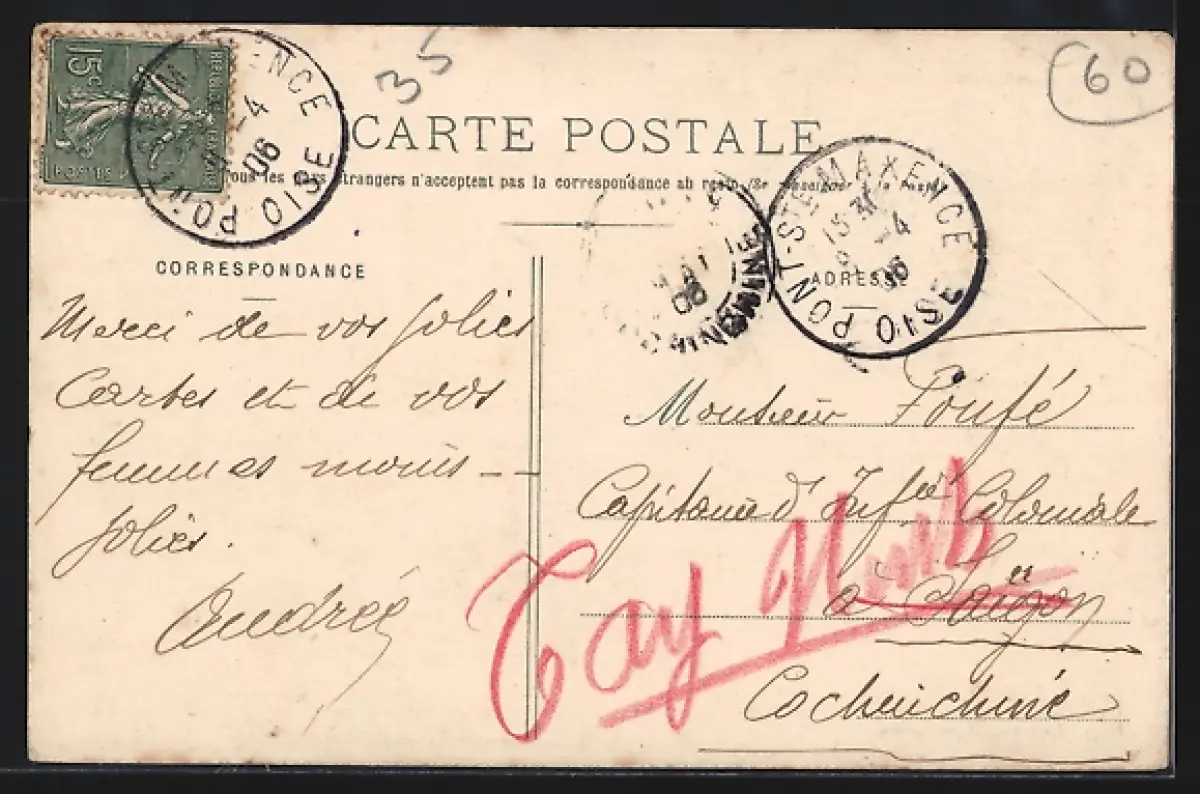 35
60
15c
CARTE POSTALE
Tous les pays étrangers n'acceptent pas la correspondance au recto (Se renseigner à la Poste)
PONT-STE-MAXENCE
OISE
-4
06
PONT-STE-MAXENCE
OISE
15
-4
06
MAI
06
CORRESPONDANCE
ADRESSE
Merci de vos jolies
Cartes et de vos
femmes moins
jolies.
Andrée
Monsieur
Capitaine d'Infie Coloniale
à Saïgon
Cochinchine
Tay Ninh